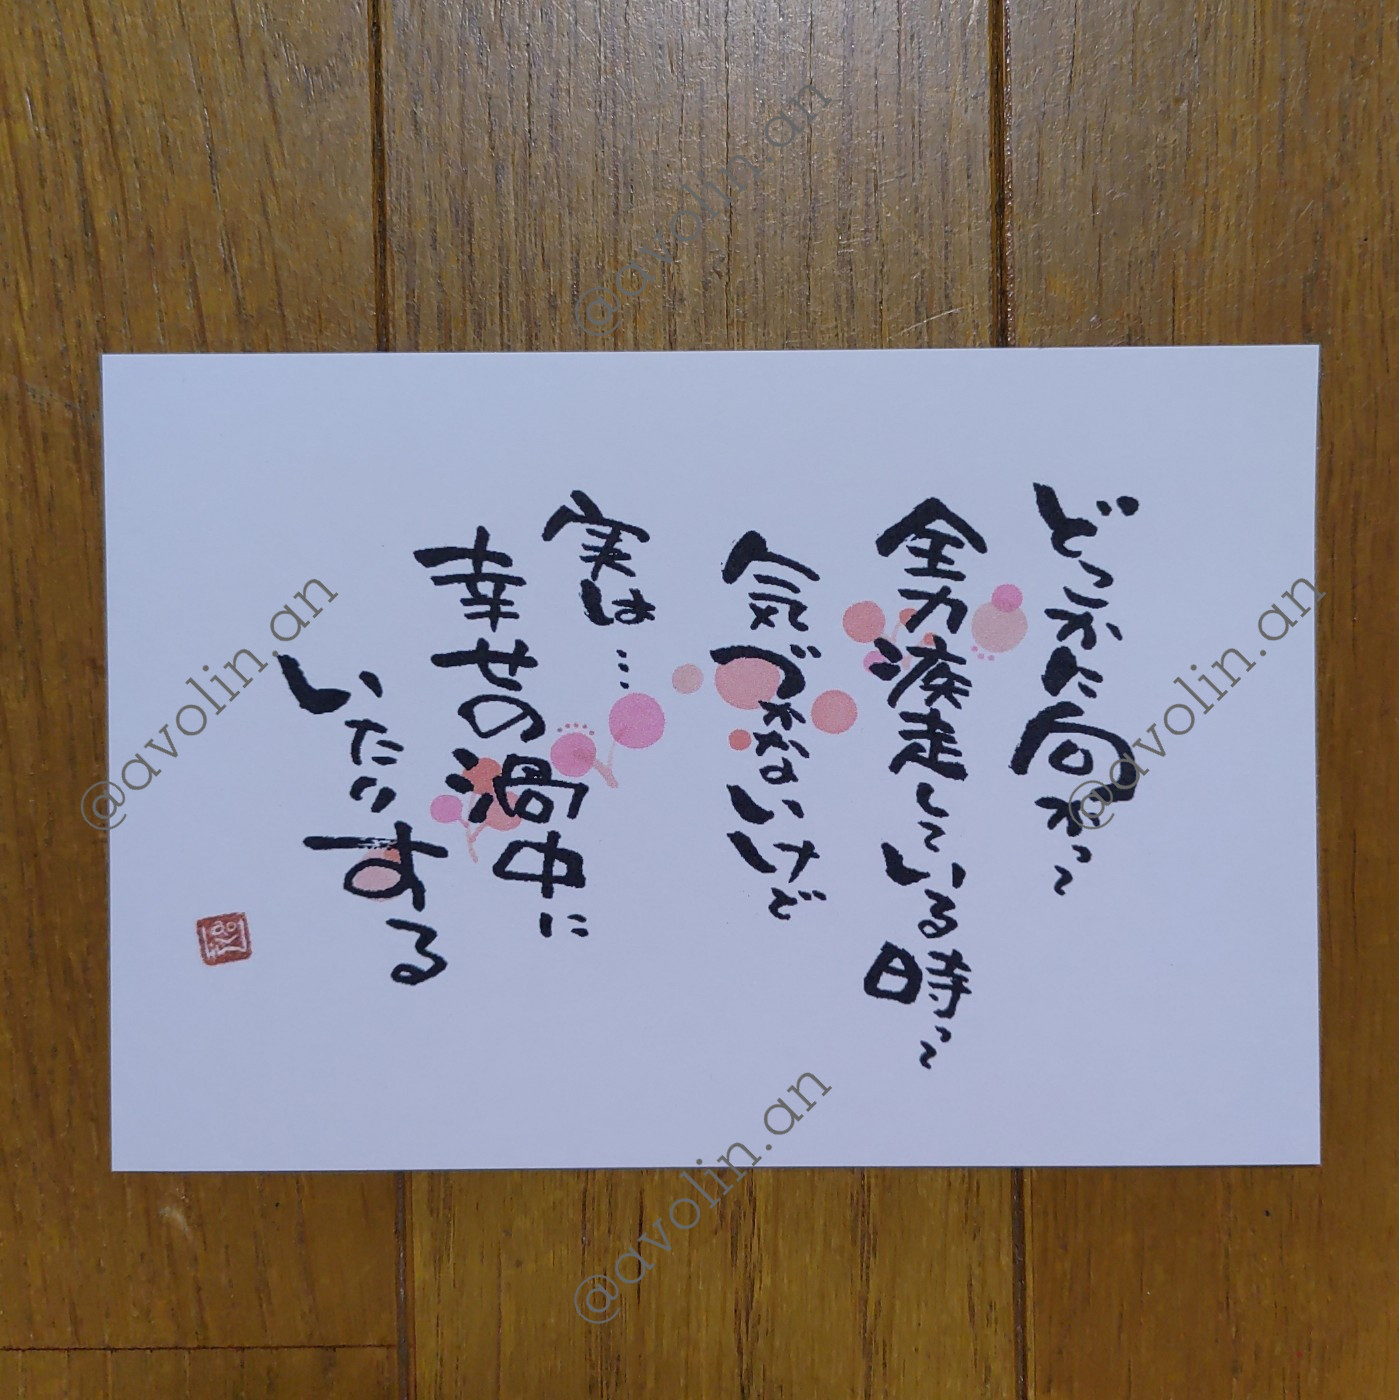 どこかに向かって
全力疾走している時って
気づかないけど
実は…
幸せの渦中に
いたりする
@avolin.an
@avolin.an
@avolin.an
@avolin.an